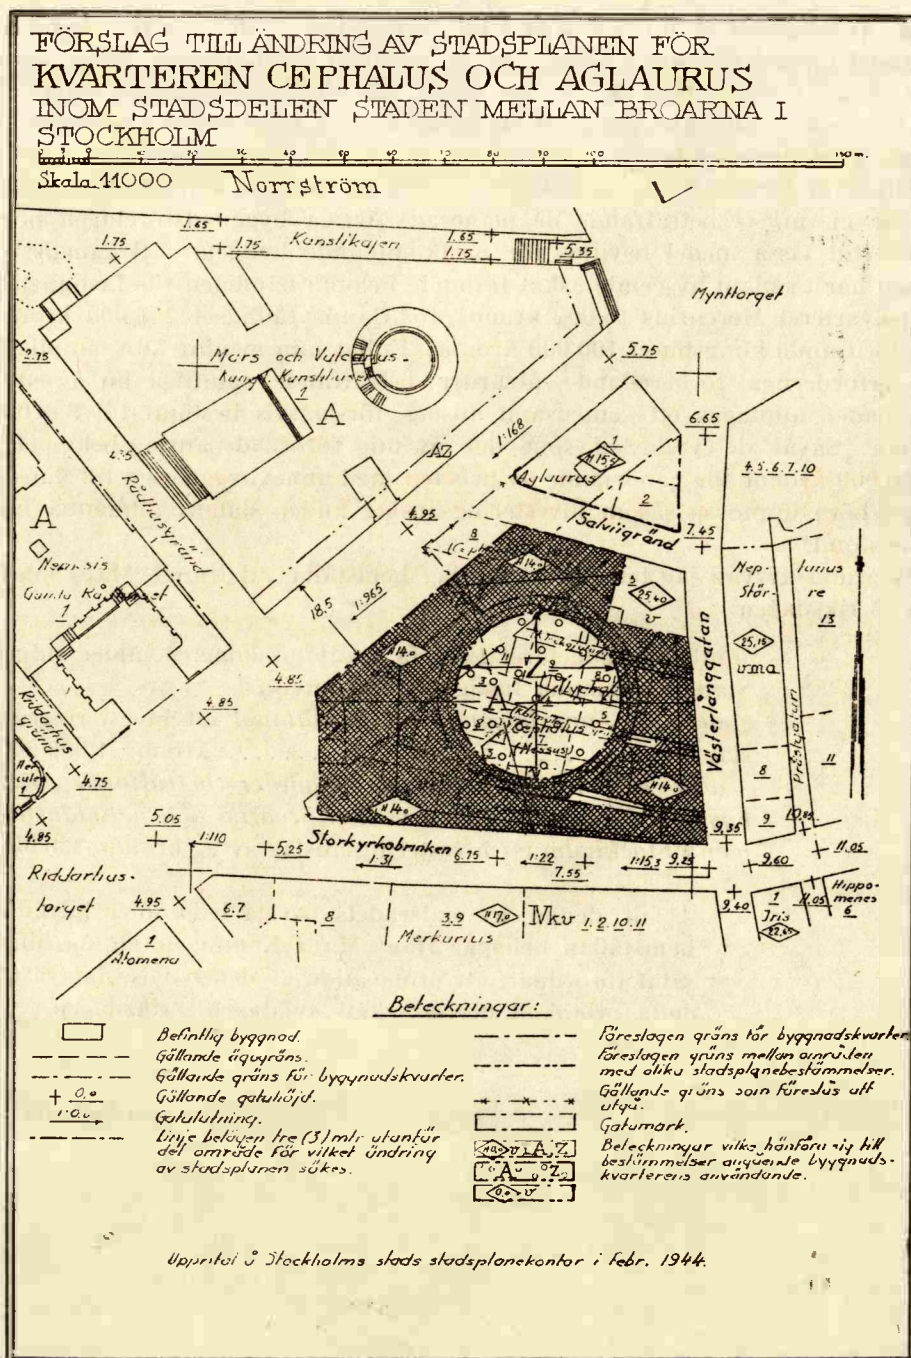 FÖRSLAG TILL ÄNDRING AV STADSPLANEN FÖR
KVARTEREN CEPHALUS OCH AGLAURUS
INOM STADSDELEN STADEN MELLAN BROARNA I
STOCKHOLM
10 20 30 40 50 60 70 80 90 100 150 m.
Skala 1:1000 Norrström
1.65
1.75 1.75 Kanslikajen 1.65
1.75 5.35
Mynttorget
2.75
Mars och Vulcanus
Kungl. Kanslihuset
1
5.75
A
1:168
6.65
AZ
1
H15.0
Aglaurus
2
4.5.6.7.10
4.35
Rådhusgränd
A
4.95
Salviigränd
7.45
8
H14.0
3
25.40
v
Nep- tunus
Stör- re
13
25.15
vma
Nepensis
Gamla Rådhuset
1
18.5
1:965
H14.0
Z
A
Cephalus
(Nessus)
Västerlånggatan
Prästgatan
4.85
4.85
Riddarhus
gränd
4.75
8 11
H14.0
H14.0
9
4.85
5.05
1:110
Storkyrkobrinken
5.25 1:31 6.75 1:22 7.55 1:15,3 9.25
9.35
9.60
11.05
Riddarhus-
torget
4.95
6.7 8 3.9 H17.0 Mkv 1.2.10.11
Merkurius
9.40
1
Iris
22.65
11.05
Hippo-
menes
6
1
Atomena
Beteckningar:
Befintlig byggnad.
Gällande ägogräns.
Gällande gräns för byggnadskvarter.
0.0 Gällande gatuhöjd.
1:0.0 Gatulutning.
Linje belägen tre (3) mtr utanför
det område för vilket ändring
av stadsplanen sökes.
Föreslagen gräns för byggnadskvarter
Föreslagen gräns mellan områden
med olika stadsplanebestämmelser.
Gällande gräns som föreslås att
utgå.
Gatumark.
Beteckningar vilka hänföra sig till
bestämmelser angående byggnads-
kvarterens användande.
Uppritat å Stockholms stads stadsplanekontor i Febr. 1944.